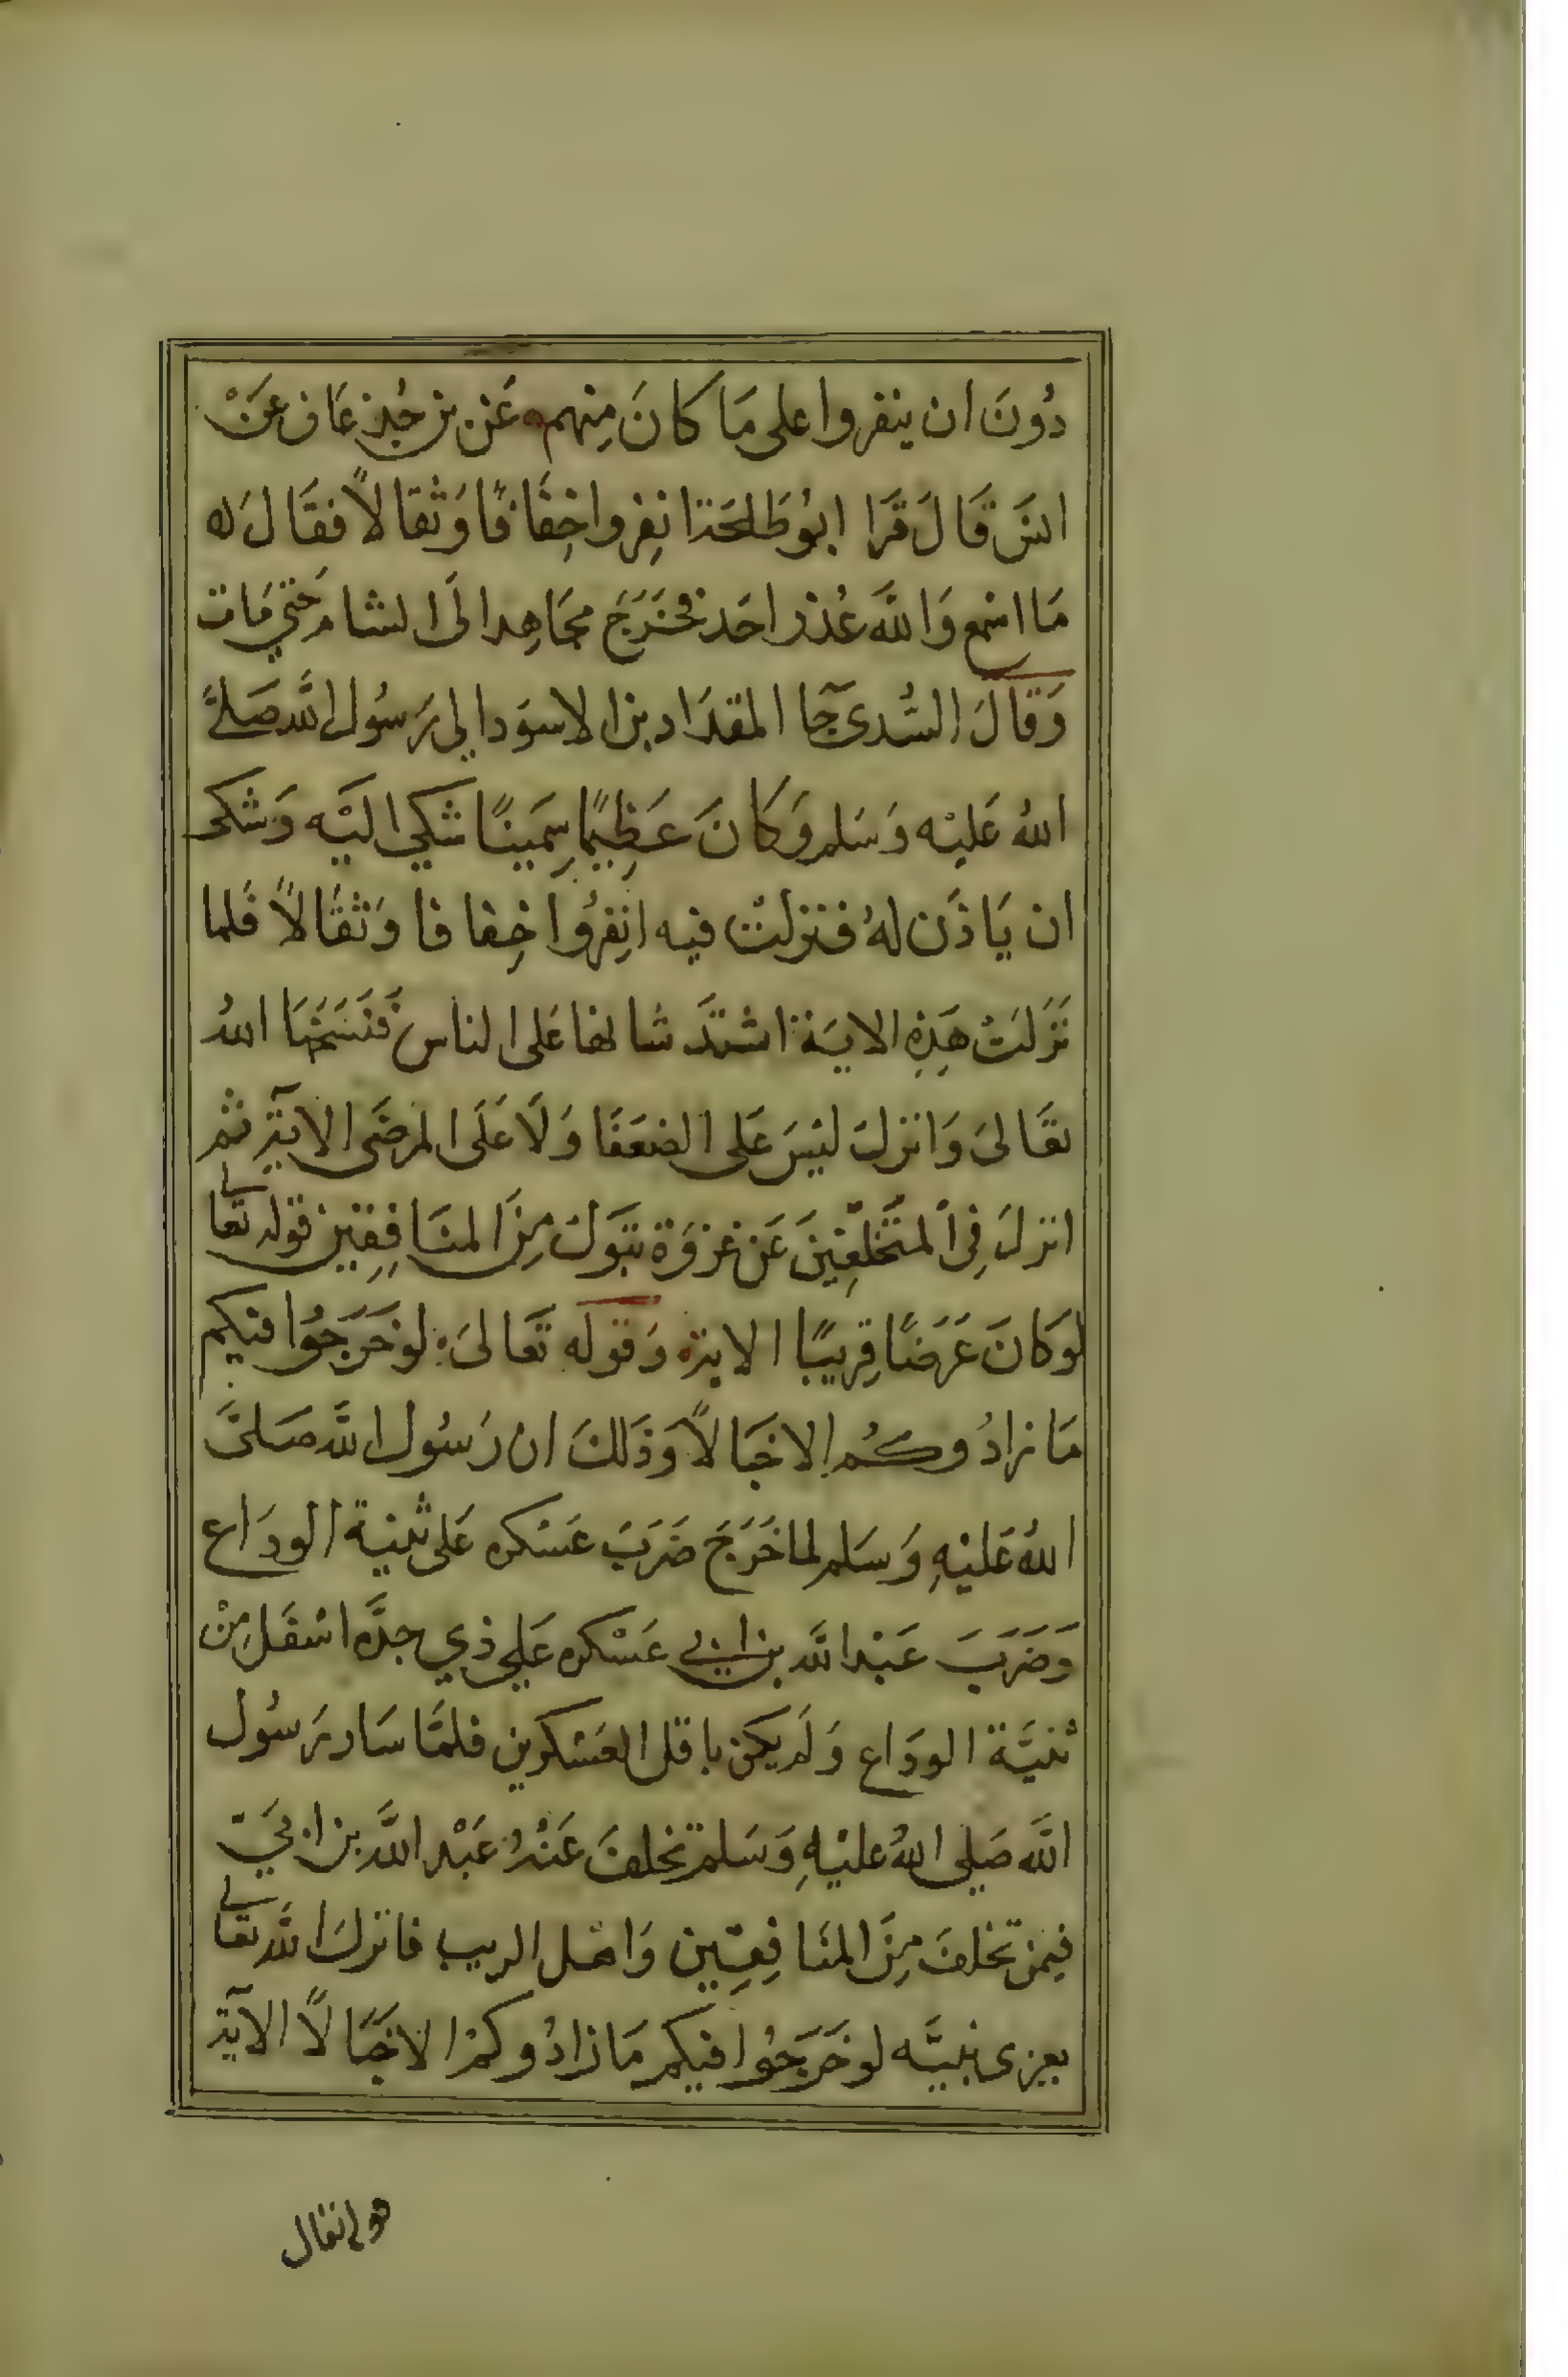 دُونَ ان ينفروا على مَا كانَ مِنهم عَن بن جُدْعَان عَنْ
انسَ قَالَ قَرَا ابُو طَلحَة انفِروا خِفَافًا وَثقالاً فقَالَ له
مَا اسْمع وَاللَّه عُذر احَد فخَرَجَ مجَاهِدا الَى الشام حَتي مَات
وَقالَ السُّدى جَآ المقدَاد بن الاسوَد الي رَسُول اللَّه صَلىَّ
اللهُ عَليْه وَسَلم وَكَانَ عَظِيمًا سِمَينًا شكي اليَه وَشكى
ان يَاذَن لهُ فنزلتْ فيه انفِرُوا خِفافا وَثقَالاً فلما
نَزَلَتْ هَذِهِ الايَة اشتدَّ شانها عَلى الناس فَنَسَخهَا اللهُ
تعَالىَ وَانزلَ ليْسَ عَلى الضعَفَا وَلَا عَلَى المرضَى الآيَة ثم
انزلَ فِى المتَخَلّفِينَ عَن غزوَة تبَوك مِنَ المنَافِقِين قوله تعَالي
لوكَانَ عَرَضًا قرِيبًا الاية وَقوله تَعَالىَ لوخَرَجُوا فيكم
مَا زادُوكُم الا خبَالاً وَذَلكَ ان رَسُول اللَّه صَلىَّ
اللهُ عَليْهِ وَسَلم لما خَرَجَ ضَرَبَ عَسْكره عَلى ثنيَة الودَاع
وَضَرَبَ عَبْد اللَّه بن ابي عَسْكره عَلي ذي جدَّه اسْفَل مِنْ
ثنيَّة الودَاع وَلَم يكن باقل العَسْكرين فلمَّا سَار رَسُول
اللَّه صَلي اللهُ عَليْهِ وَسَلم تخلفَ عَنْهُ عَبْد اللَّه بن ابَيّ
فيمن تخلفَ مِنَ المنَافِقِين وَاهْل الريب فانزلَ اللَّه تعَالي
يعزى نبيَّه لوخَرَجُوا فيكم مَازادُوكمْ الا خَبَالاً الآية